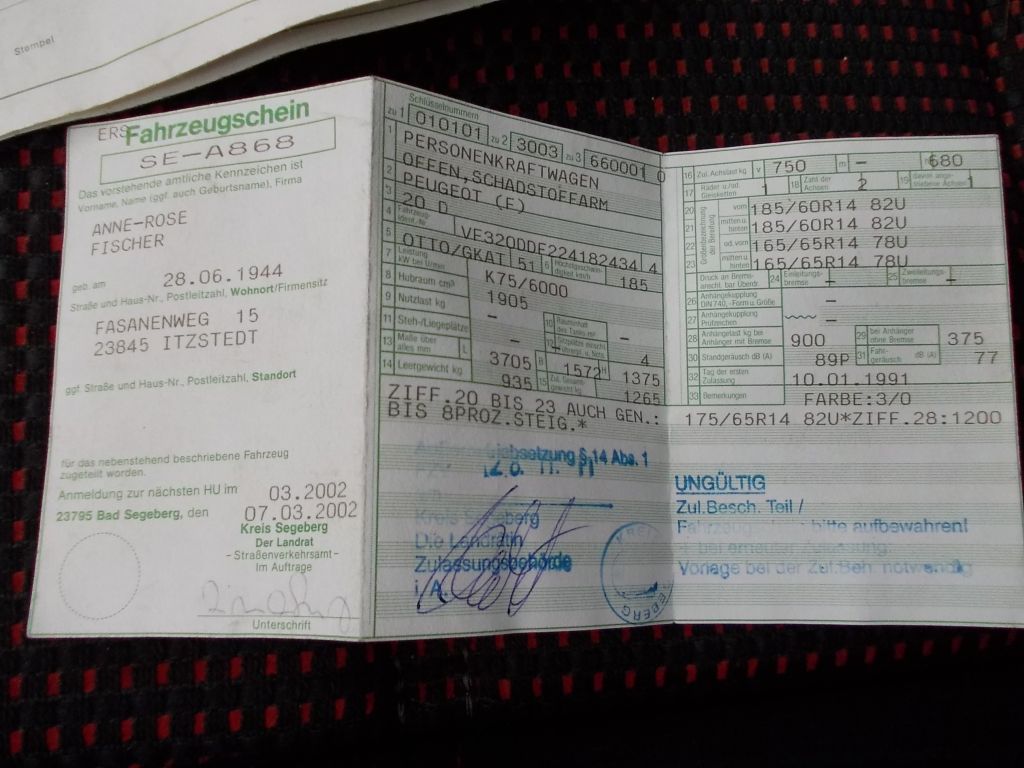 Stempel
ERS Fahrzeugschein
SE-A868
Das vorstehende amtliche Kennzeichen ist
Vorname, Name (ggf. auch Geburtsname), Firma
ANNE-ROSE
FISCHER
geb. am 28.06.1944
Straße und Haus-Nr., Postleitzahl, Wohnort/Firmensitz
FASANENWEG 15
23845 ITZSTEDT
ggf. Straße und Haus-Nr., Postleitzahl, Standort
für das nebenstehend beschriebene Fahrzeug
zugeteilt worden.
Anmeldung zur nächsten HU im 03.2002
23795 Bad Segeberg, den 07.03.2002
Kreis Segeberg
Der Landrat
-Straßenverkehrsamt-
Im Auftrage
Unterschrift
Schlüsselnummern
zu 1 010101 zu 2 3003 zu 3 660001 0
1 PERSONENKRAFTWAGEN
OFFEN,SCHADSTOFFARM
2 PEUGEOT (F)
3 20 D
4 Fahrzeug-Ident.-Nr. VF320DDE224182434 4
5 OTTO/GKAT 51 6 Höchstgeschwindigkeit km/h 185
7 Leistung kW bei U/min K75/6000
8 Hubraum cm³ 1905
9 Nutzlast kg - 10 Rauminhalt des Tanks m³ -
11 Steh-/Liegeplätze - 12 4
13 Maße über alles mm L 3705 B 1572 H 1375
14 Leergewicht kg 935 15 Zul. Gesamtgewicht kg 1265
ZIFF.20 BIS 23 AUCH GEN.:
BIS 8PROZ.STEIG.*
§ 14 Abs. 1
Kreis Segeberg
Die Landrätin
Zulassungsbehörde
i. A.
KREIS SEGEBERG
16 Zul. Achslast kg v 750 m - h 680
17 Räder u./od. Gleisketten 1 18 Zahl der Achsen 2 19 davon angetriebene Achsen 1
Größenbezeichnung der Bereifung
20 vorn 185/60R14 82U
21 mitten u. hinten 185/60R14 82U
22 od. vorn 165/65R14 78U
23 mitten u. hinten 165/65R14 78U
Druck an Bremsanschl. bar Überdr. 24 Einleitungsbremse - 25 Zweileitungsbremse -
26 Anhängekupplung DIN 740,-Form u. Größe -
27 Anhängekupplung Prüfzeichen -
28 Anhängelast kg bei Anhänger mit Bremse 900 29 bei Anhänger ohne Bremse 375
30 Standgeräusch dB (A) 89P 31 Fahrgeräusch dB (A) 77
32 Tag der ersten Zulassung 10.01.1991
33 Bemerkungen FARBE:3/0
175/65R14 82U*ZIFF.28:1200
UNGÜLTIG
Zul.Besch. Teil /
bitte aufbewahren!
Vorlage bei der Zul.Beh. notwendig